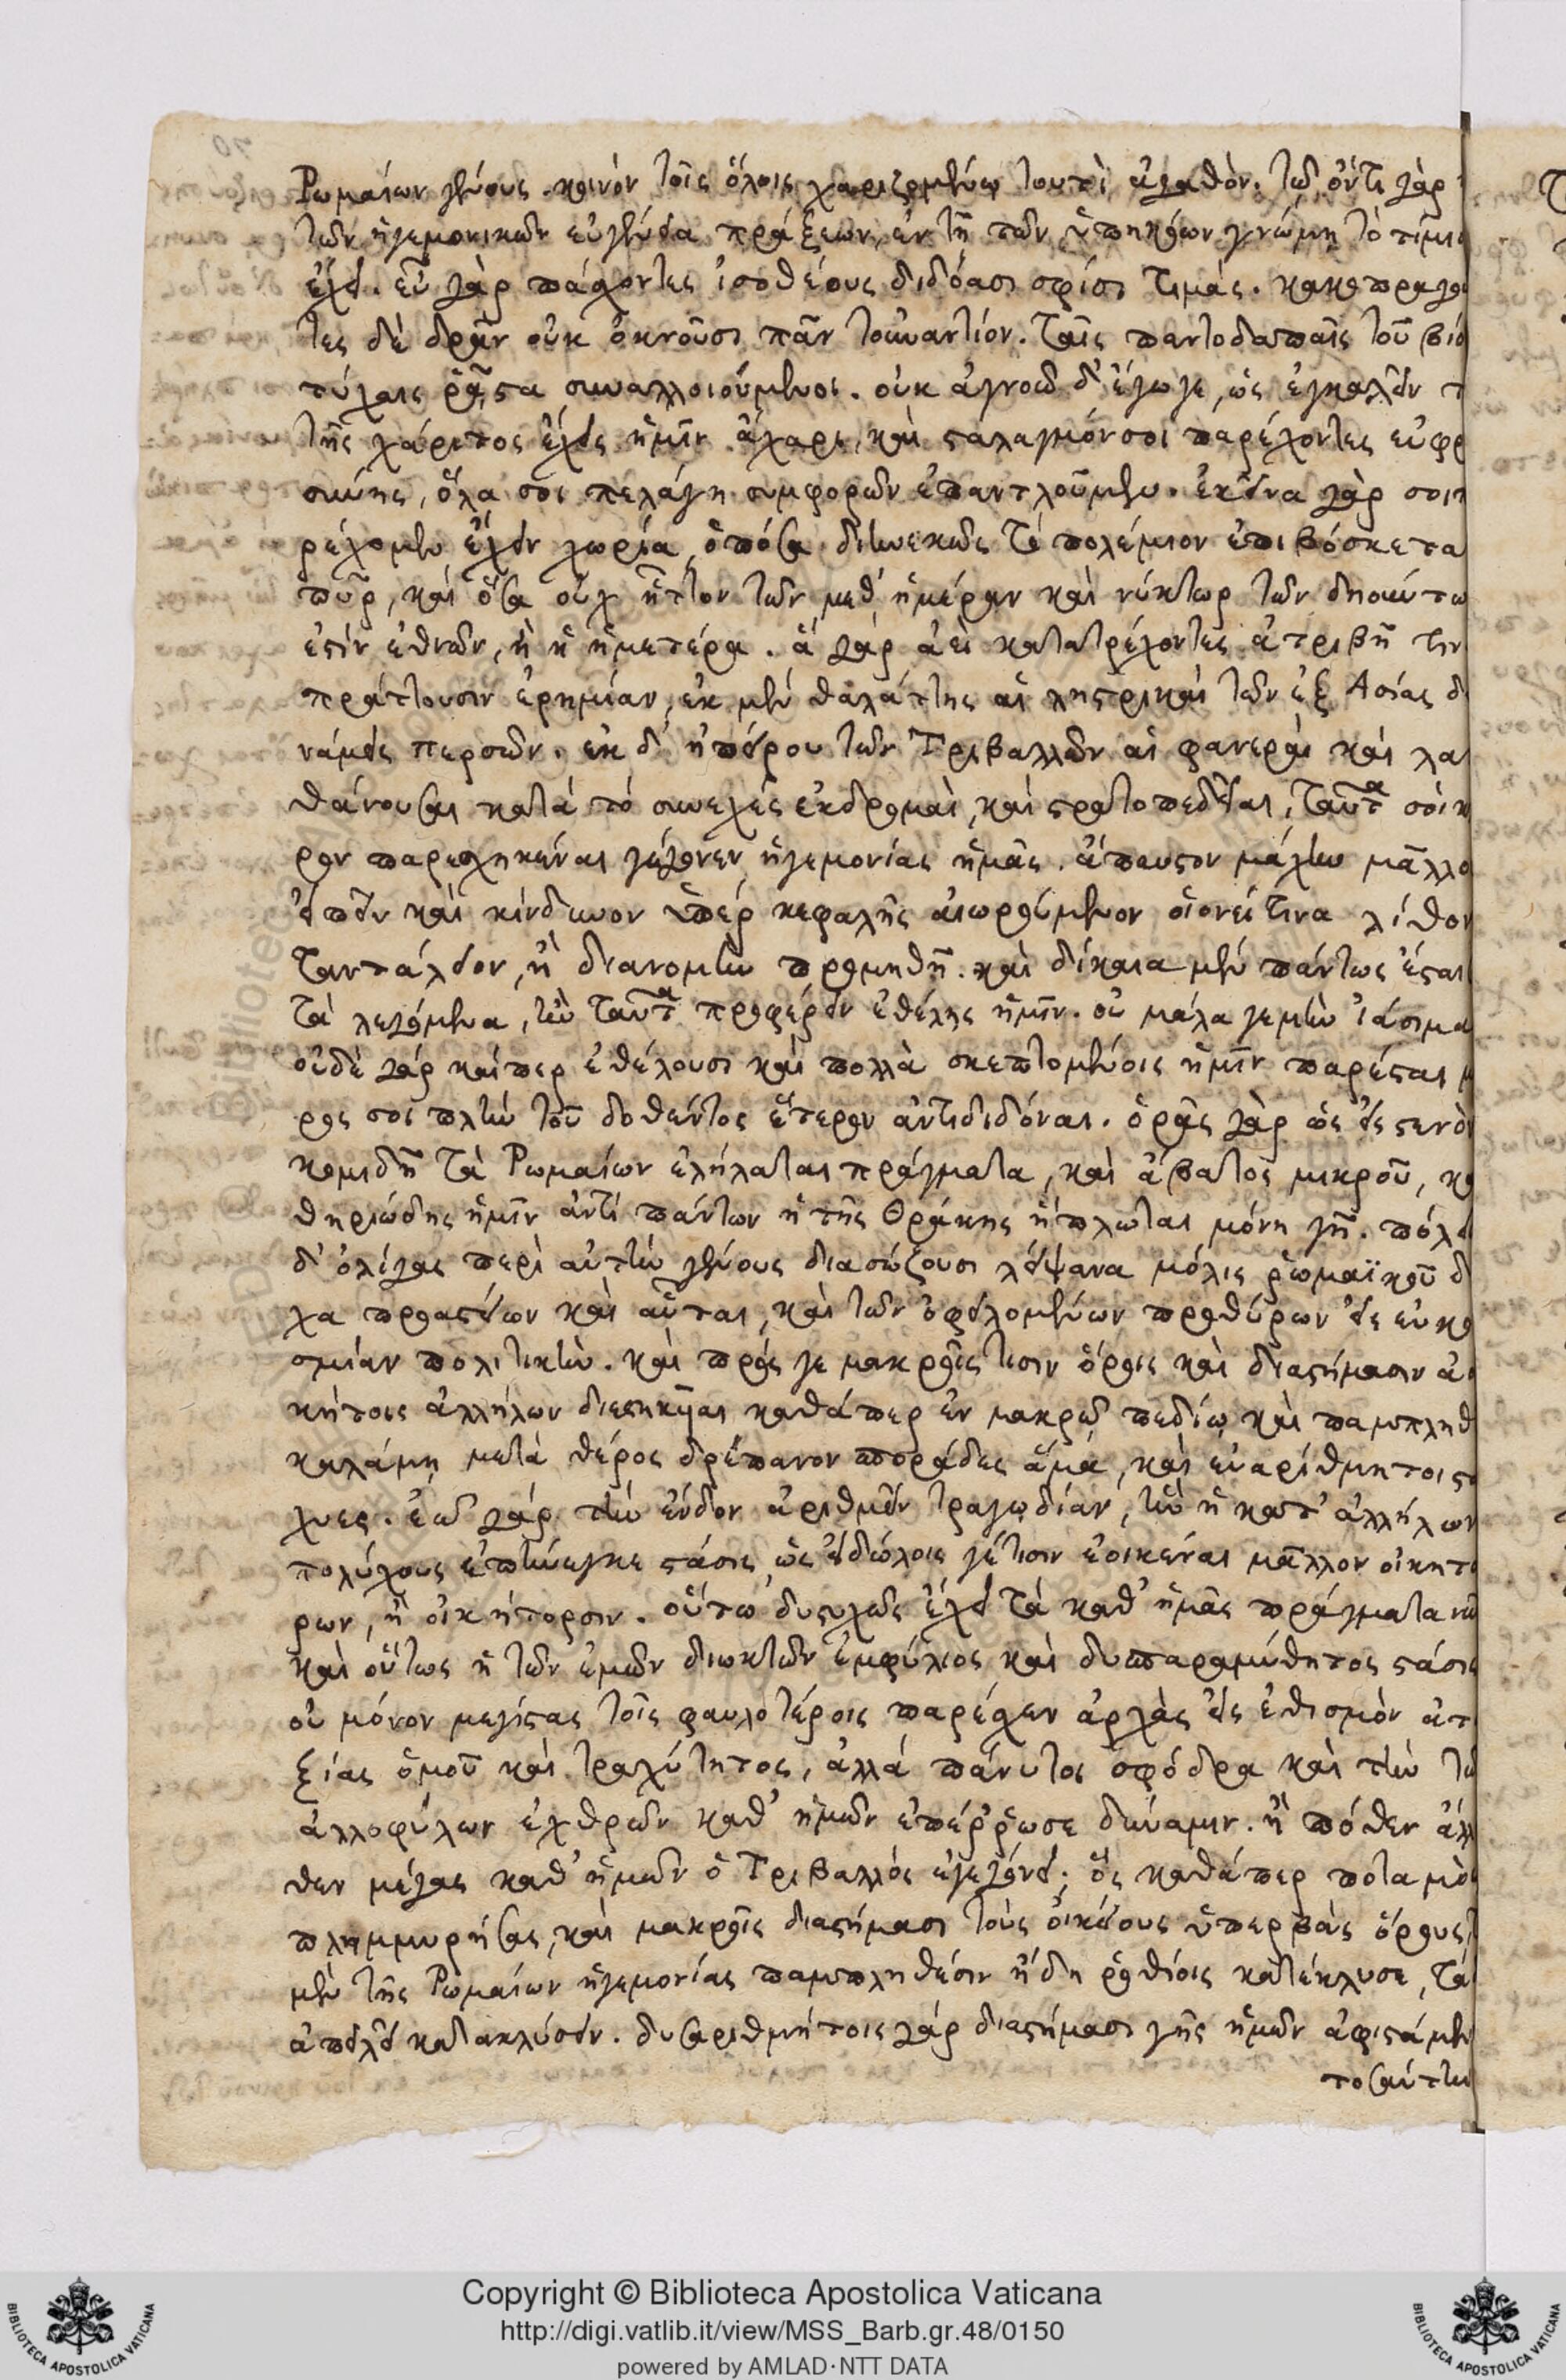 Ρωμαίων γένους. κοινὸν τοῖς ὅλοις χαριζομένῳ τουτὶ ἀγαθόν. τῷ ὄντι γὰρ
τῶν ἡγεμονικῶν εὐγένεια πράξεων, ἐν τῇ τῶν ὑπηκόων γνώμῃ τὸ τίμιο
ἔχει. εὖ γὰρ πάσχοντες ἰσοθέους διδόασι σφίσι τιμάς. κακοπραγοῦ
τες δὲ δρᾶν οὐκ ὀκνοῦσι πᾶν τοὐναντίον. ταῖς παντοδαπαῖς τοῦ βίου
τύχαις ῥᾷστα συναλλοιούμενοι. οὐκ ἀγνοῶ δ' ἔγωγε, ὡς ἐγκαλεῖν
τῆς χάριτος ἔχεις ἡμῖν ἄχαρι, καὶ σταλαγμόν σοι παρέχοντες εὐφρ
σύνης, ὅλα σοι πελάγη συμφορῶν ἐπαντλοῦμεν. ἐκεῖνα γὰρ σοι
ρέχομεν ἔχειν χωρία, ὁπόσα διηνεκῶς τὸ πολέμιον ἐπιβόσκεται
πῦρ, καὶ ὅσα οὐχ ἧττον τῶν μεθ' ἡμέραν καὶ νύκτωρ τῶν δηούντω
ἐστὶν ἐθνῶν, ἢ ἡ ἡμετέρα. ἃ γὰρ ἀεὶ κατατρέχοντες ἀτριβῆ τιν
πράττουσιν ἐρημίαν, ἐκ μὲν θαλάττης αἱ λῃστρικαὶ τῶν ἐξ Ἀσίας δυ
νάμεις περσῶν. ἐκ δ' ἠπείρου τῶν Τριβαλλῶν αἱ φανεραὶ καὶ λα
θάνουσαι κατὰ τὸ συνεχὲς ἐκδρομαὶ, καὶ στρατοπεδεῖαι, ταῦτά σοι κ
ρον παρεσχηκέναι γέγονεν ἡγεμονίας ἡμᾶς. ἄπαυστον μάχην μᾶλλο
εἰπεῖν καὶ κίνδυνον ὑπὲρ κεφαλῆς αἰωρούμενον οἱονεί τινα λίθον
Ταντάλειον, ἢ διανομὴν προμηθῆ. καὶ δίκαια μὲν πάντως ἔσται
τὰ λεγόμενα, ἢν ταῦτα προφέρειν ἐθέλῃς ἡμῖν. οὐ μάλα γε μὴν ἰάσιμα
οὐδὲ γὰρ καίπερ ἐθέλουσι καὶ πολλὰ σκεπτομένοις ἡμῖν παρέσται μ
ρος σοι πλὴν τοῦ δοθέντος ἕτερον ἀντιδιδόναι. ὁρᾷς γὰρ ὡς εἰς στενὸν
κομιδῇ τὰ Ρωμαίων ἐλήλαται πράγματα, καὶ ἄβατος μικροῦ, κα
θηριώδης ἡμῖν ἀντὶ πάντων ἡ τῆς Θρᾴκης ἥπλωται μόνη γῆ. πόλει
δ' ὀλίγας περὶ αὐτὴν γένους διασώζουσι λείψανα μόλις ῥωμαϊκοῦ δί
χα προαστείων καὶ αὗται, καὶ τῶν ὀφειλομένων προθύρων εἰς εὐκο
σμίαν πολιτικήν. καὶ πρός γε μακροῖς τισιν ὅροις καὶ διαστήμασιν ἀο
κήτοις ἀλλήλων διεστήκασι καθάπερ ἐν μακρῷ πεδίῳ καὶ παμπληθ
καλάμῃ μετὰ θέρος δρέπανον σποράδες ἅμα, καὶ εὐαρίθμητοι στά
χυες. ἐῶ γὰρ τὴν ἔνδον ἀριθμεῖν τραγῳδίαν, ἣν ἡ κατ' ἀλλήλων
πολύχους ἐπήνεγκε στάσις, ὡς εἰδώλοις γέ τισιν ἐοικέναι μᾶλλον οἰκητό
ρων, ἢ οἰκήτορσιν. οὕτω δυστυχῶς ἔχει τὰ καθ' ἡμᾶς πράγματα νῦν
καὶ οὕτως ἡ τῶν ἐμῶν διωκτῶν ἐμφύλιος καὶ δυσπαραμύθητος στάσις
οὐ μόνον μεγίστας τοῖς φαυλοτέροις παρέσχεν ἀρχὰς εἰς ἐθισμὸν ἀτ
ξίας ὁμοῦ καὶ τραχύτητος, ἀλλὰ πάνυ τοι σφόδρα καὶ τὴν τῶ
ἀλλοφύλων ἐχθρῶν καθ' ἡμῶν ἐπέρρωσε δύναμιν. ἢ πόθεν ἄλλο
θεν μέγας καθ' ἡμῶν ὁ Τριβαλλὸς ἐγεγόνει; ὃς καθάπερ ποταμὸς
πλημμυρήσας, καὶ μακροῖς διαστήμασι τοὺς οἰκείους ὑπερβὰς ὅρους,
μὲν τῆς Ρωμαίων ἡγεμονίας παμπληθέσιν ἤδη ῥοθίοις κατέκλυσε, τὰ
ἀπειλεῖ κατακλύσειν. δυσαριθμήτοις γὰρ διαστήμασι γῆς ἡμῶν ἀφιστάμεν
τοσαύτην
Copyright © Biblioteca Apostolica Vaticana
http://digi.vatlib.it/view/MSS_Barb.gr.48/0150
powered by AMLAD·NTT DATA
BIBLIOTECA APOSTOLICA VATICANA
BIBLIOTECA APOSTOLICA VATICANA